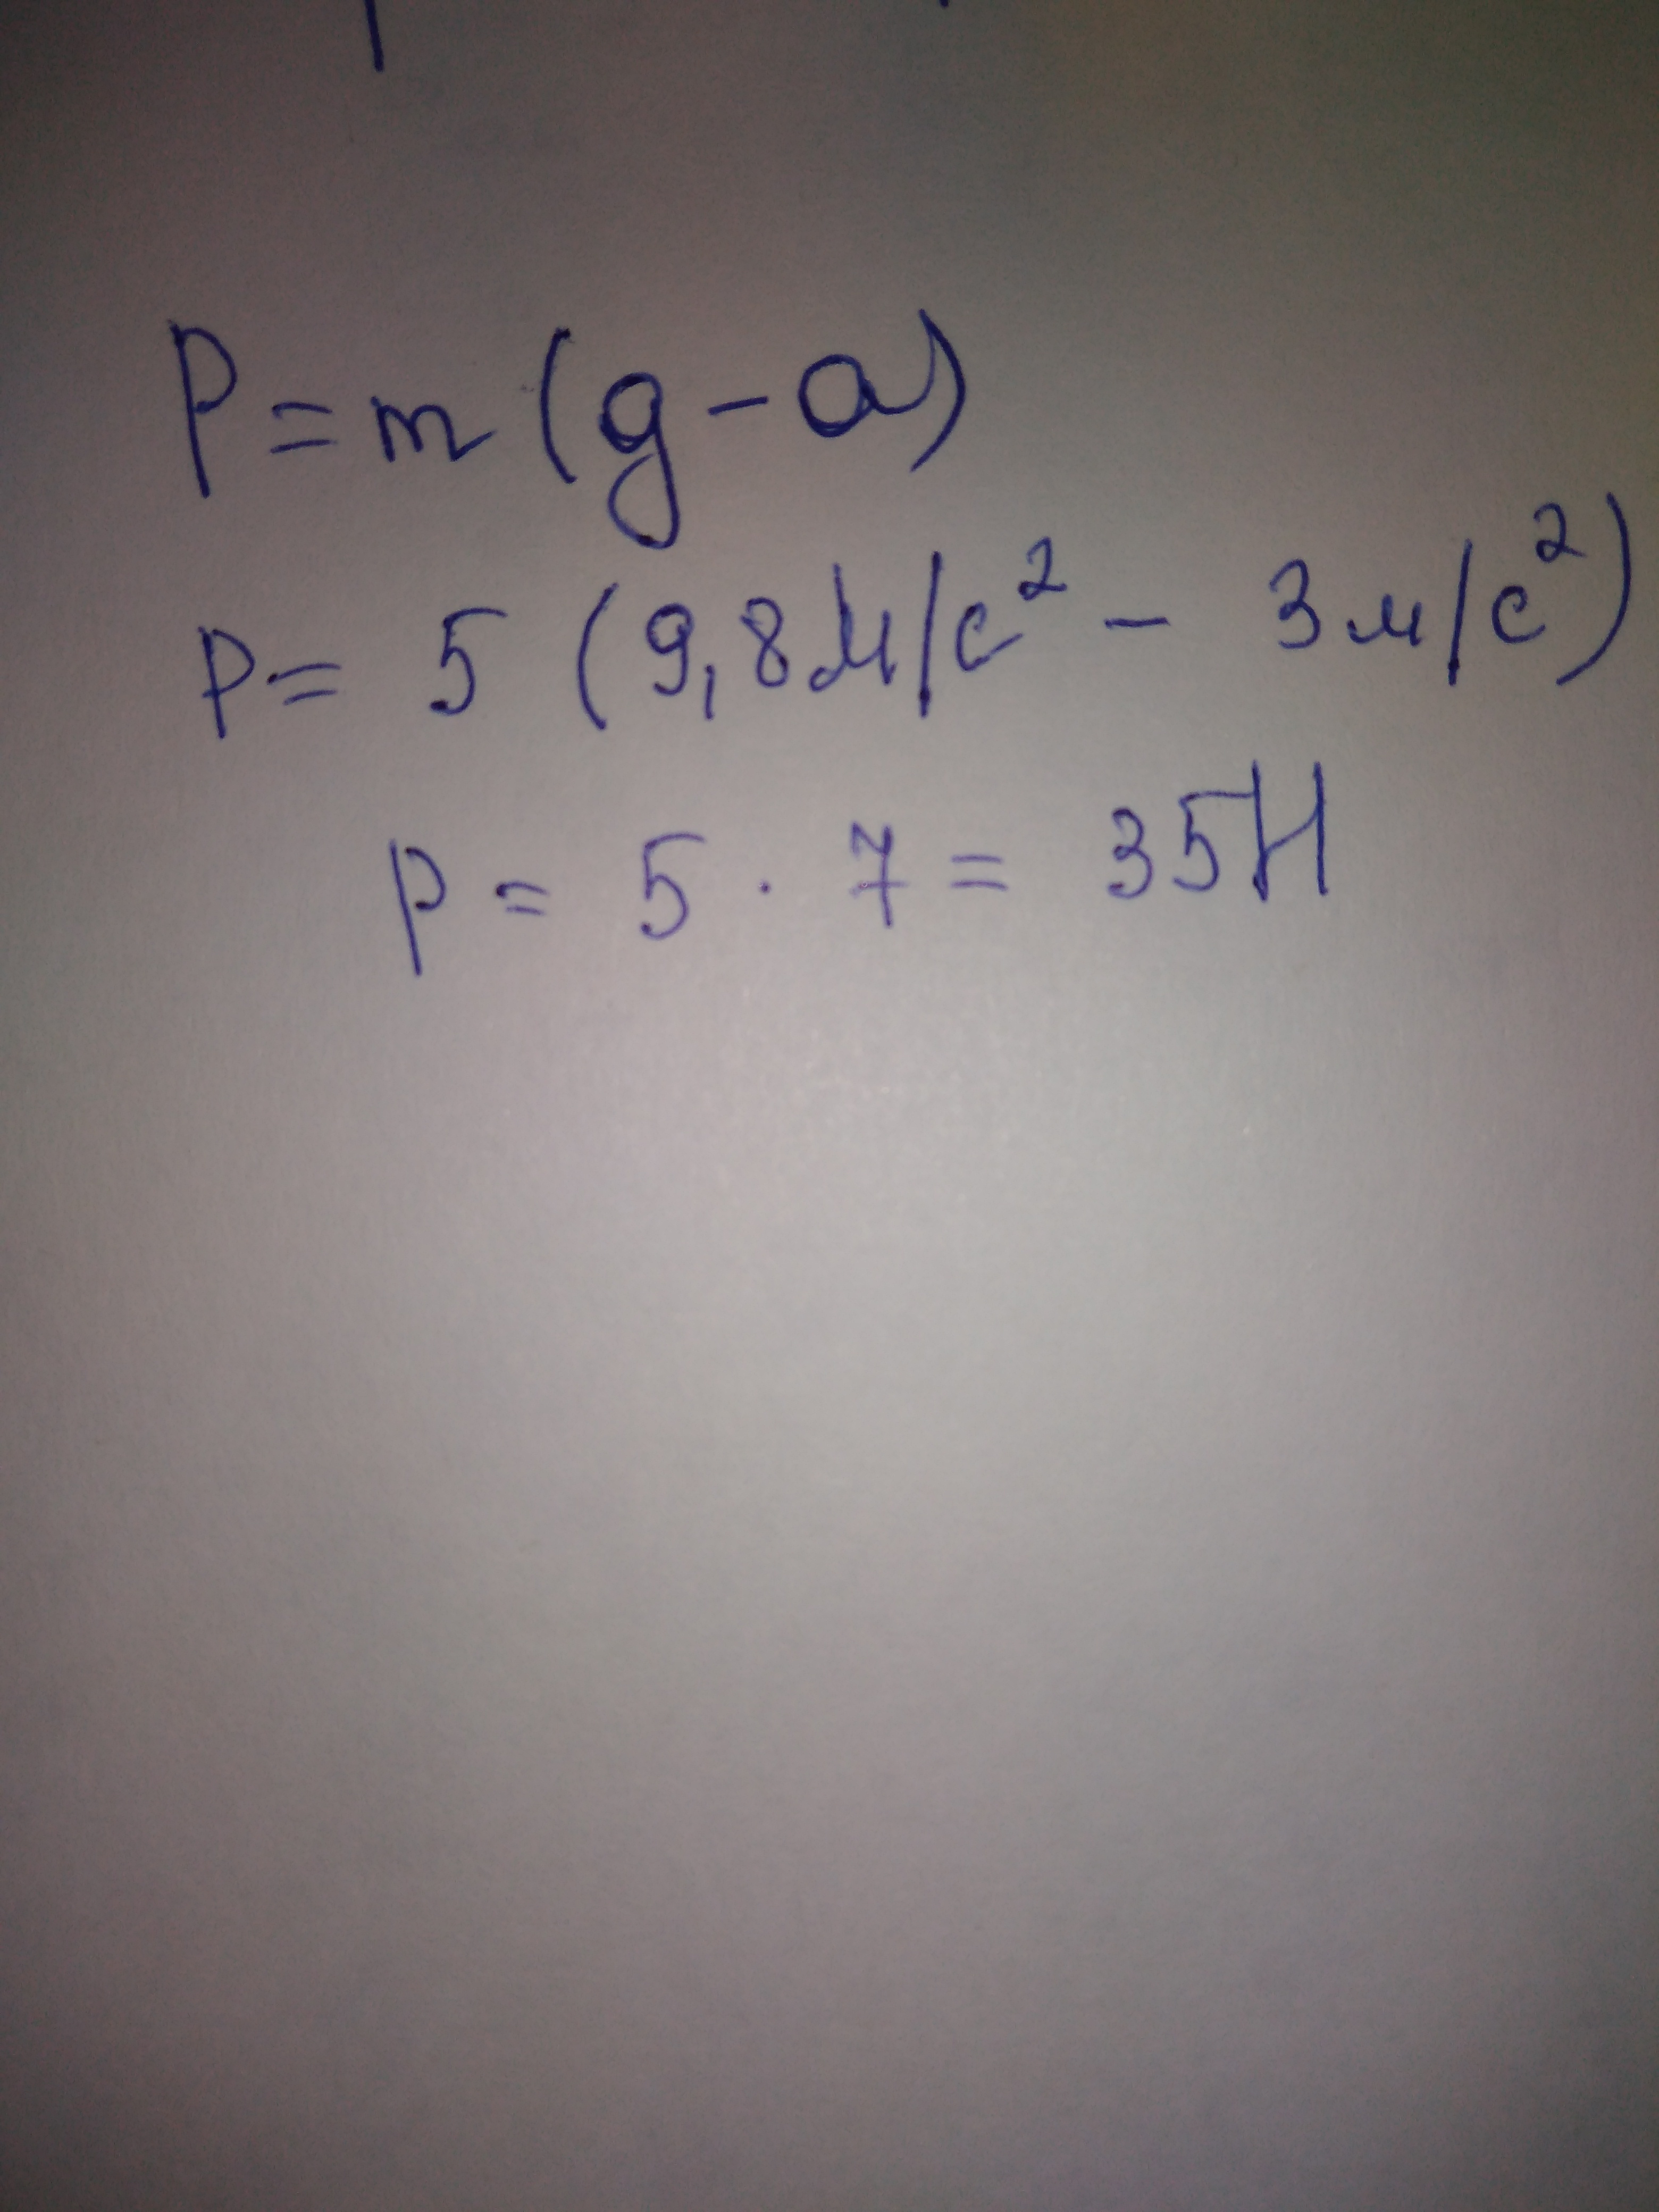 P = m (g - a)
P = 5 (9,8 м/с² - 3 м/с²)
P = 5 · 7 = 35Н